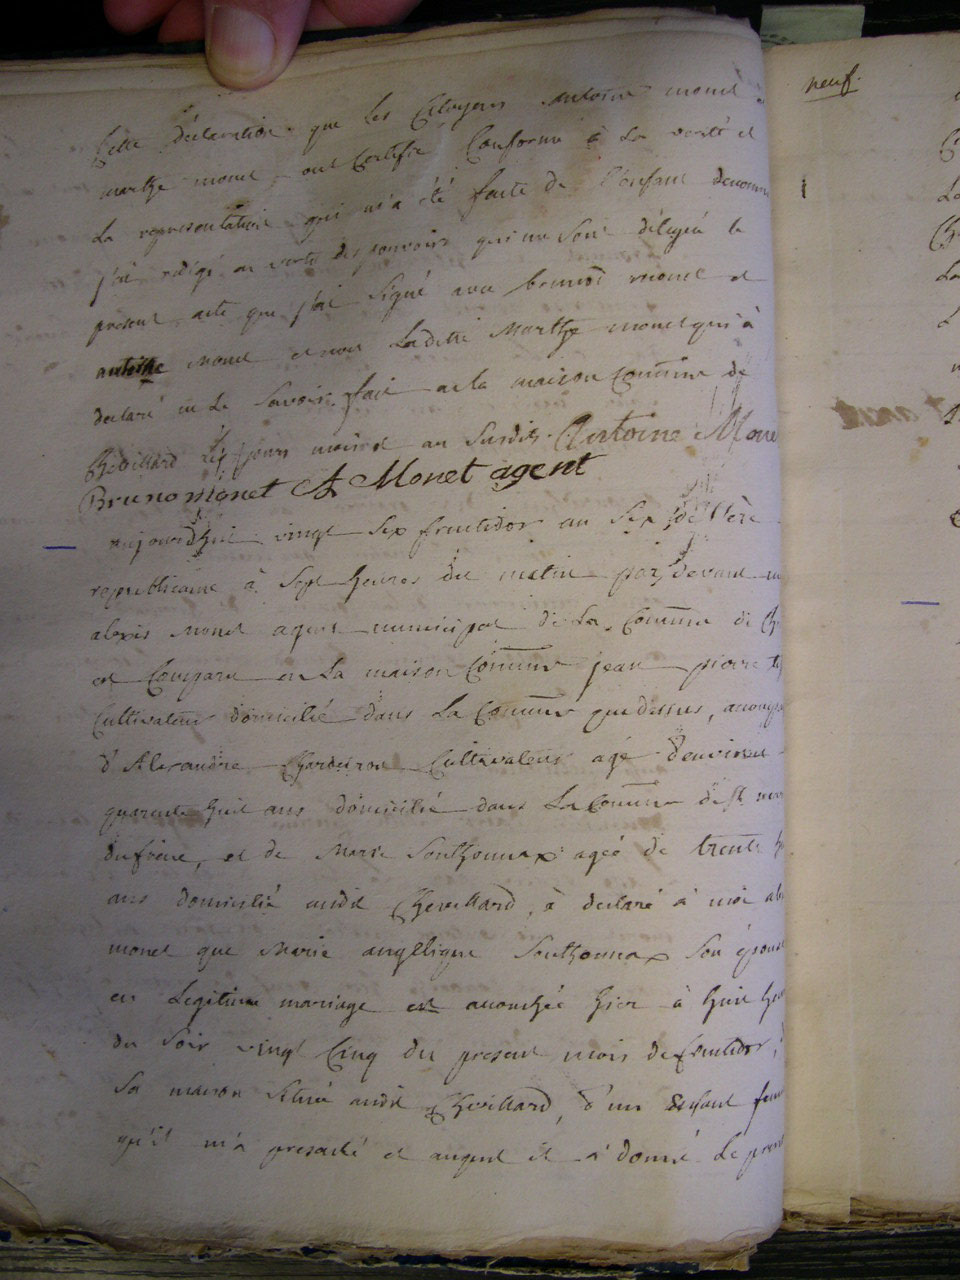 Cette déclaration que les Citoyens antoine monet
marthe monet ont Certifié Conforme à La verité et
La representation qui m'a été faite de l'enfant denommé
j'ai redigé en vertu des pouvoirs qui me sont délégués le
present acte que j'ai signé avec monet et
antoine monet et non Ladite Marthe monet qui à
declaré ne le savoir. fait en la maison Commune de
Chevillard Les jours mois et an susdits Antoine Mone
Bruno monet A Monet agent
aujourd'hui vingt six fructidor an six de l'ère
republicaine à sept heures du matin par devant
alexis monet agent municipal de La Commune de Ch
est Comparu en La maison Commune jean pierre
Cultivateur domicilié dans La Commune que dessus,
d'Alexandre Cultivateur agé d'environ
quarente huit ans domicilié dans La Commune de St
du frêne, et de Marie Southonnax ageé de trente
ans domicilié audit Chevillard, à declaré à moi
monet que Marie angélique Southonnax son épouse
en Legitime mariage est accouchée hier à huit heu
du soir vingt Cinq du present mois de fructidor,
sa maison situé audit Chevillard, d'un enfant fem
qu'il m'a presenté et auquel il à donné le pren
neuf.